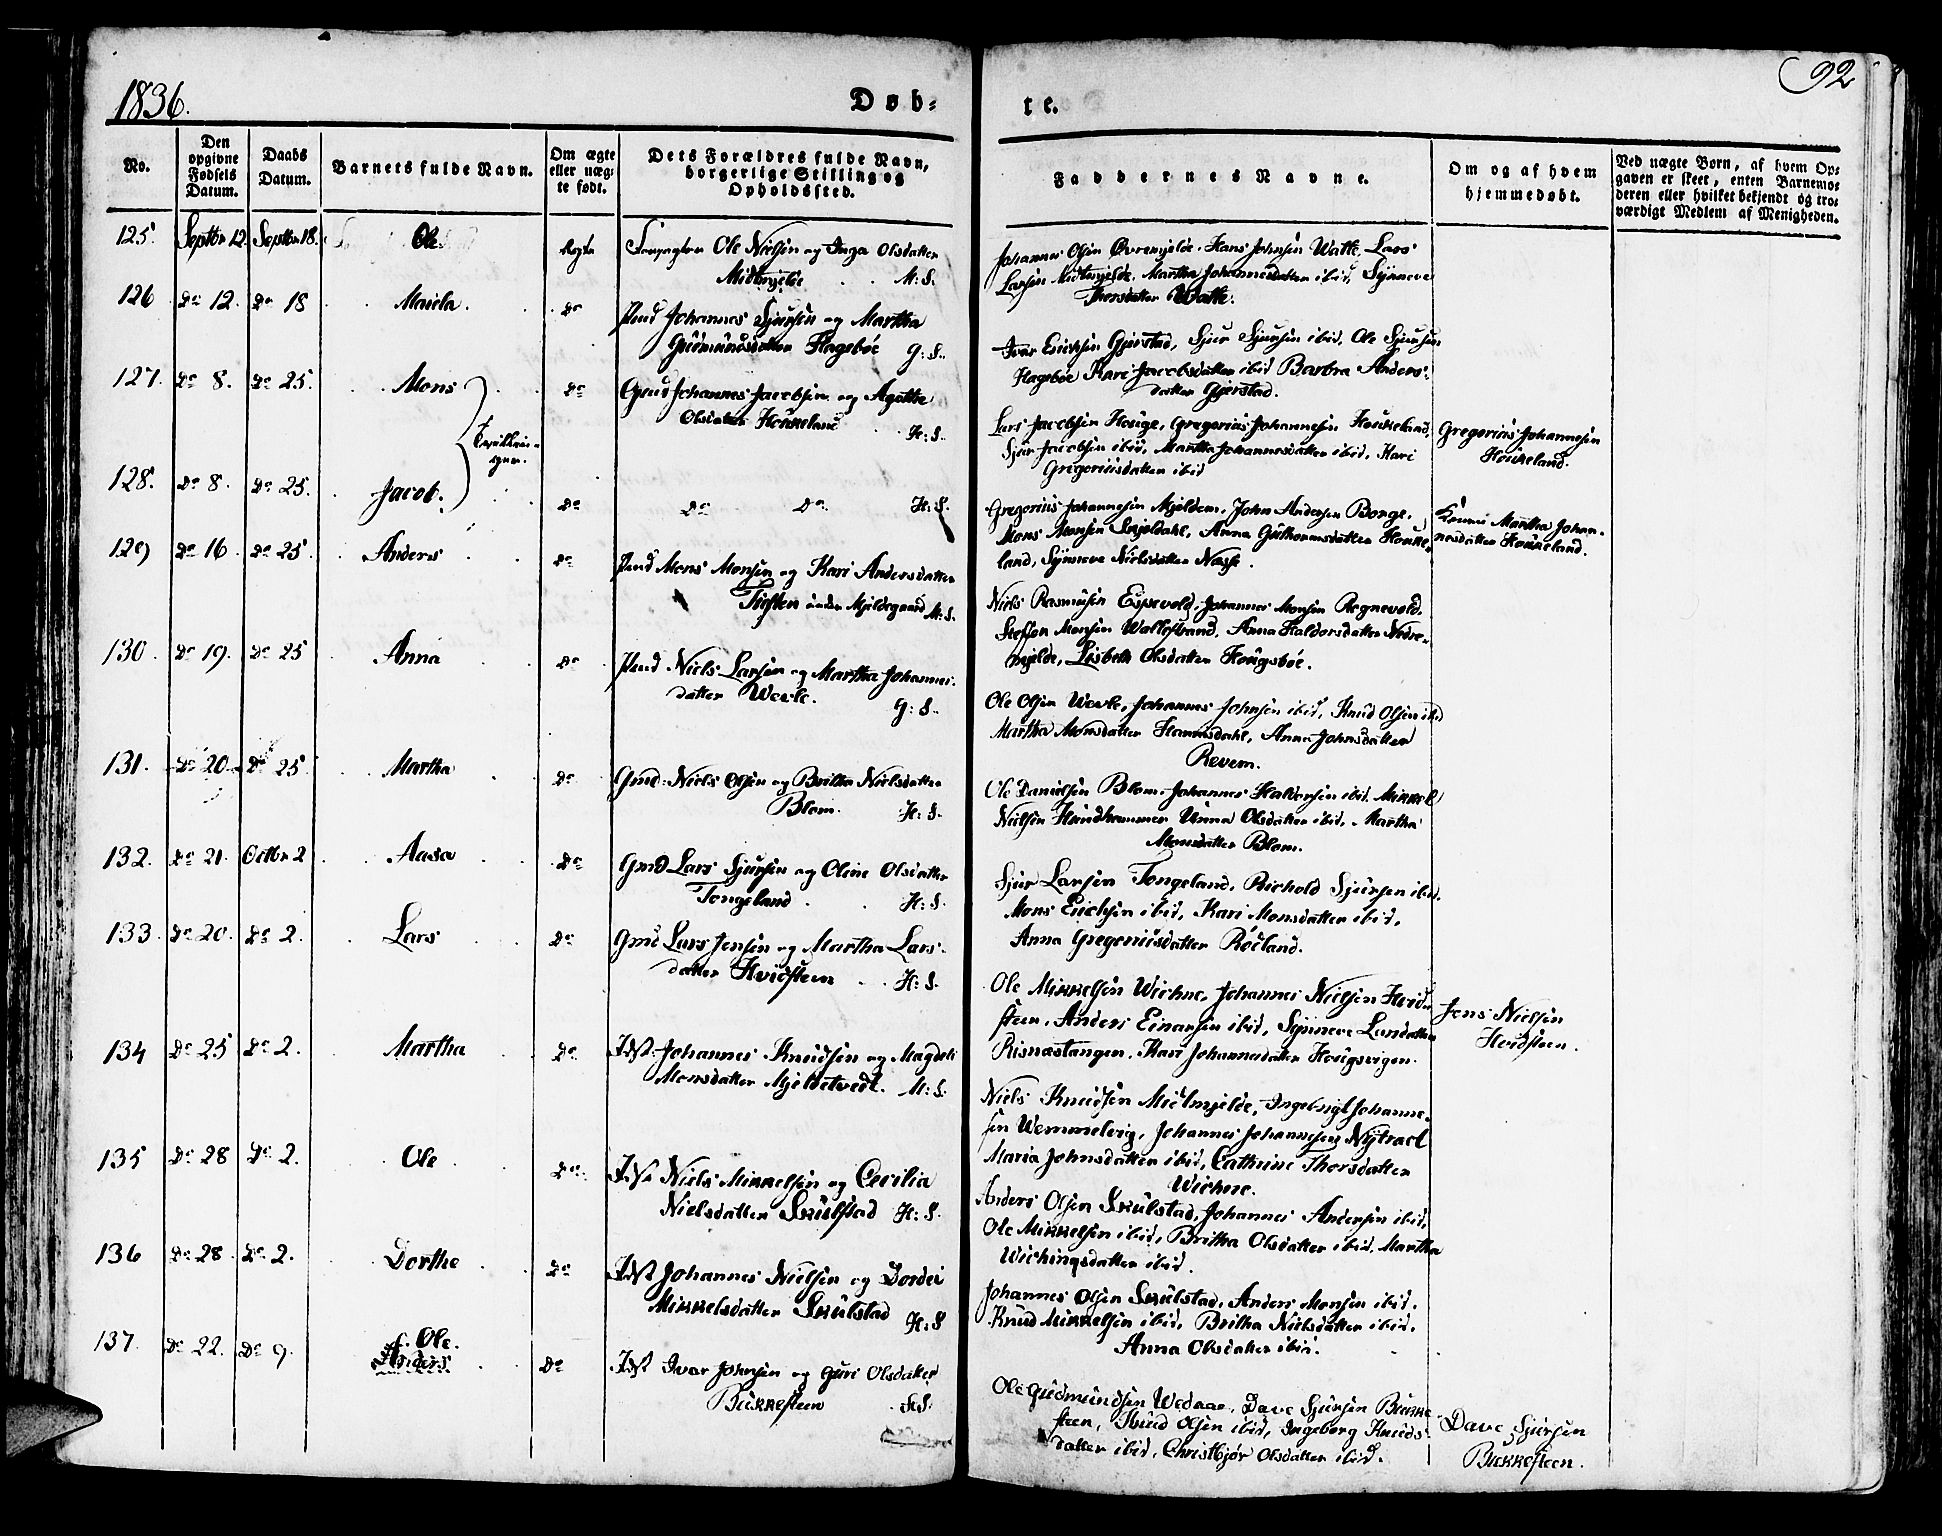 1836.
Døb-
te.
92
No.
Den
opgivne
Fødsels
Datum.
Daabs
Datum.
Barnets fulde Navn.
Om ægte
eller uæg-
te født.
Dets Forældres fulde Navn,
borgerlige Stilling og
Opholdssted.
Faddernes Navne.
Om og af hvem
hjemmedøbt.
Ved uægte Børn, af hvem Op-
gaven er skeet, enten Barnemo-
deren eller hvilket bekjendt og tro-
værdigt Medlem af Menigheden.
125. Septbr 12. Septbr 18. Ole Ægte Ole Nielsen og Inga Olsdatter
Midtmjelde M: S.
Johannes Olsen Øvremjelde. Hans Johnsen Watle. Lars
Larsen Midtmjelde. Martha Johannesdatter ibid, Synneve
Thorsdatter Watle.
126 Do 12. Do 18 Do Johannes Sjursen og Martha
Gudmundsdatter Hagebøe G: S.
Ivar Erichsen Gjerstad, Sjur Sjursen ibid, Ole Sjursen
Hagebøe Kari Jacobsdatter ibid Barbra Anders-
datter Gjerstad.
127. Do 8. Do 25. Mons Do Johannes Jacobsen og Agathe
Olsdatter Houkeland H: S.
Lars Jacobsen Houge, Gregorius Johannesen Houkeland,
Sjur Jacobsen ibid, Martha Johannesdatter ibid, Kari
Gregoriusdatter ibid
Gregorius Johannesen
Houkeland.
Tvillin-
ger.
128. Do 8. Do 25. Jacob. Do Do Do H: S.
Gregorius Johannesen Mjeldem, John Andersen Borge,
Mons Monsen Skjeldahl, Anna Guthormsdatter Houke-
land, Synneve Nielsdatter Næsse.
Konen Martha Johan-
nesdatter Houkeland.
129 Do 16. Do 25. Anders Do Mons Monsen og Kari Andersdatter
under Mjeldegaard M: S.
Niels Rasmusen Espevold, Johannes Monsen Regnevold.
Steffen Monsen Wallestrand, Anna Haldorsdatter Nedre-
mjelde, Lisbeth Olsdatter Hougsbøe.
130. Do 19. Do 25 Anna Do Niels Larsen og Martha Johannes-
datter Wevle. G: S.
Ole Olsen Wevle, Johannes Johnsen ibid, Knud Olsen ibid
Martha Monsdatter Hannisdahl, Anna Johnsdatter
Revem.
131. Do 20. Do 25 Martha Do Gmd. Niels Olsen og Britha Nielsdatter
Blom. H: S.
Ole Danielsen Blom. Johannes Haldorsen ibid. Mikkel
Nielsen Hindhammer Unna Olsdatter ibid. Martha
Monsdatter Blom.
132. Do 21. Octbr 2. Aasa Do Gmd Lars Sjursen og Oline Olsdatter
Tongeland H: S.
Sjur Larsen Tongeland, Richold Sjursen ibid.
Mons Erichsen ibid, Kari Monsdatter ibid,
Anna Gregoriusdatter Rødland.
133. Do 20. Do 2. Lars Do Gmd Lars Jensen og Martha Lars-
datter Hvidsteen H: S.
Ole Mikkelsen Wichne, Johannes Nielsen Hvid-
steen. Anders Einarsen ibid, Synneve
Risnæstangen. Kari Johannesdatter Hougsvigen.
Jens Nielsen
Hvidsteen.
134 Do 25 Do 2. Martha Do Idst Johannes Knudsen og Magdeli
Monsdatter Mjeldetvedt. M: S.
Niels Knudsen Midtmjelde, Ingebrigt Johanne-
sen Wemmelvig, Johannes Johannesen
Maria Johnsdatter ibid, Cathrine Thorsdatter
Wichne.
135 Do 28 Do 2. Ole Do Idst Niels Mikkelsen og Cecilia
Nielsdatter Skulstad H: S.
Anders Olsen Skulstad, Johannes Andersen ibid,
Ole Mikkelsen ibid, Britha Olsdatter ibid, Martha
Wichingsdatter ibid.
136 Do 28. Do 2. Dorthe Do Idst Johannes Nielsen og Dordei
Mikkelsdatter Skulstad H: S
Johannes Olsen Skulstad, Anders Monsen ibid.
Knud Mikkelsen ibid, Britha Nielsdatter ibid,
Anna Olsdatter ibid.
137. Do 22. Do 9. Ole.
Anders. Do Idst Ivar Johnsen og Guri Olsdatter
Bukkesteen H: S.
Ole Gudmundsen Wedaae, Dave Sjursen Bukke-
steen, Knud Olsen ibid, Ingeborg Knuds-
datter ibid, Christbjør Olsdatter ibid.
Dave Sjursen
Bukkesteen.